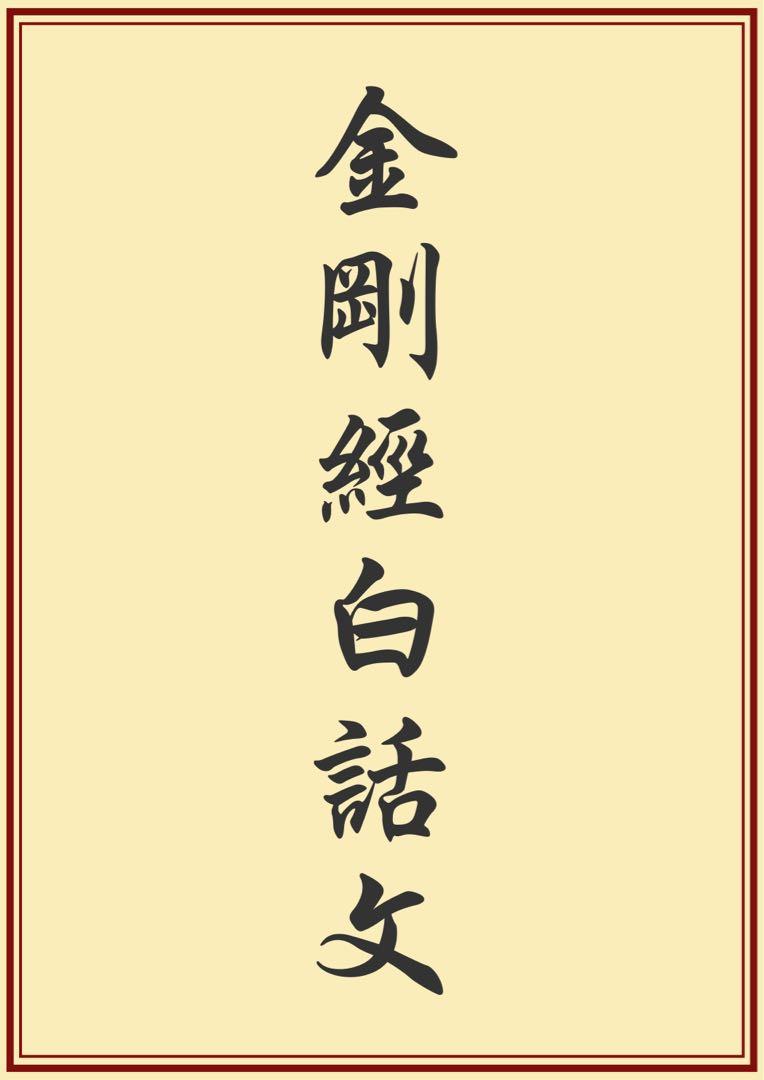 金剛經白話文